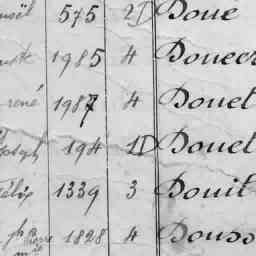 575 2D Doue
1985 4 Doucer
rené 1987 4 Douet
194 1D Douet
Félix 1339 3 Douit
1828 4 Douss